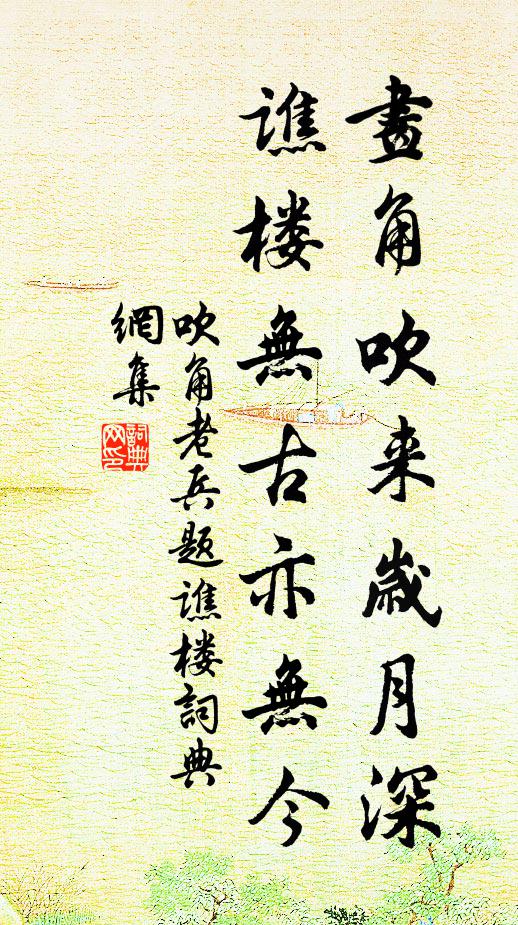 畫角吹来歲月深
譙楼無古亦無今
吹角老兵题譙楼詞典
網集
詞典
网印